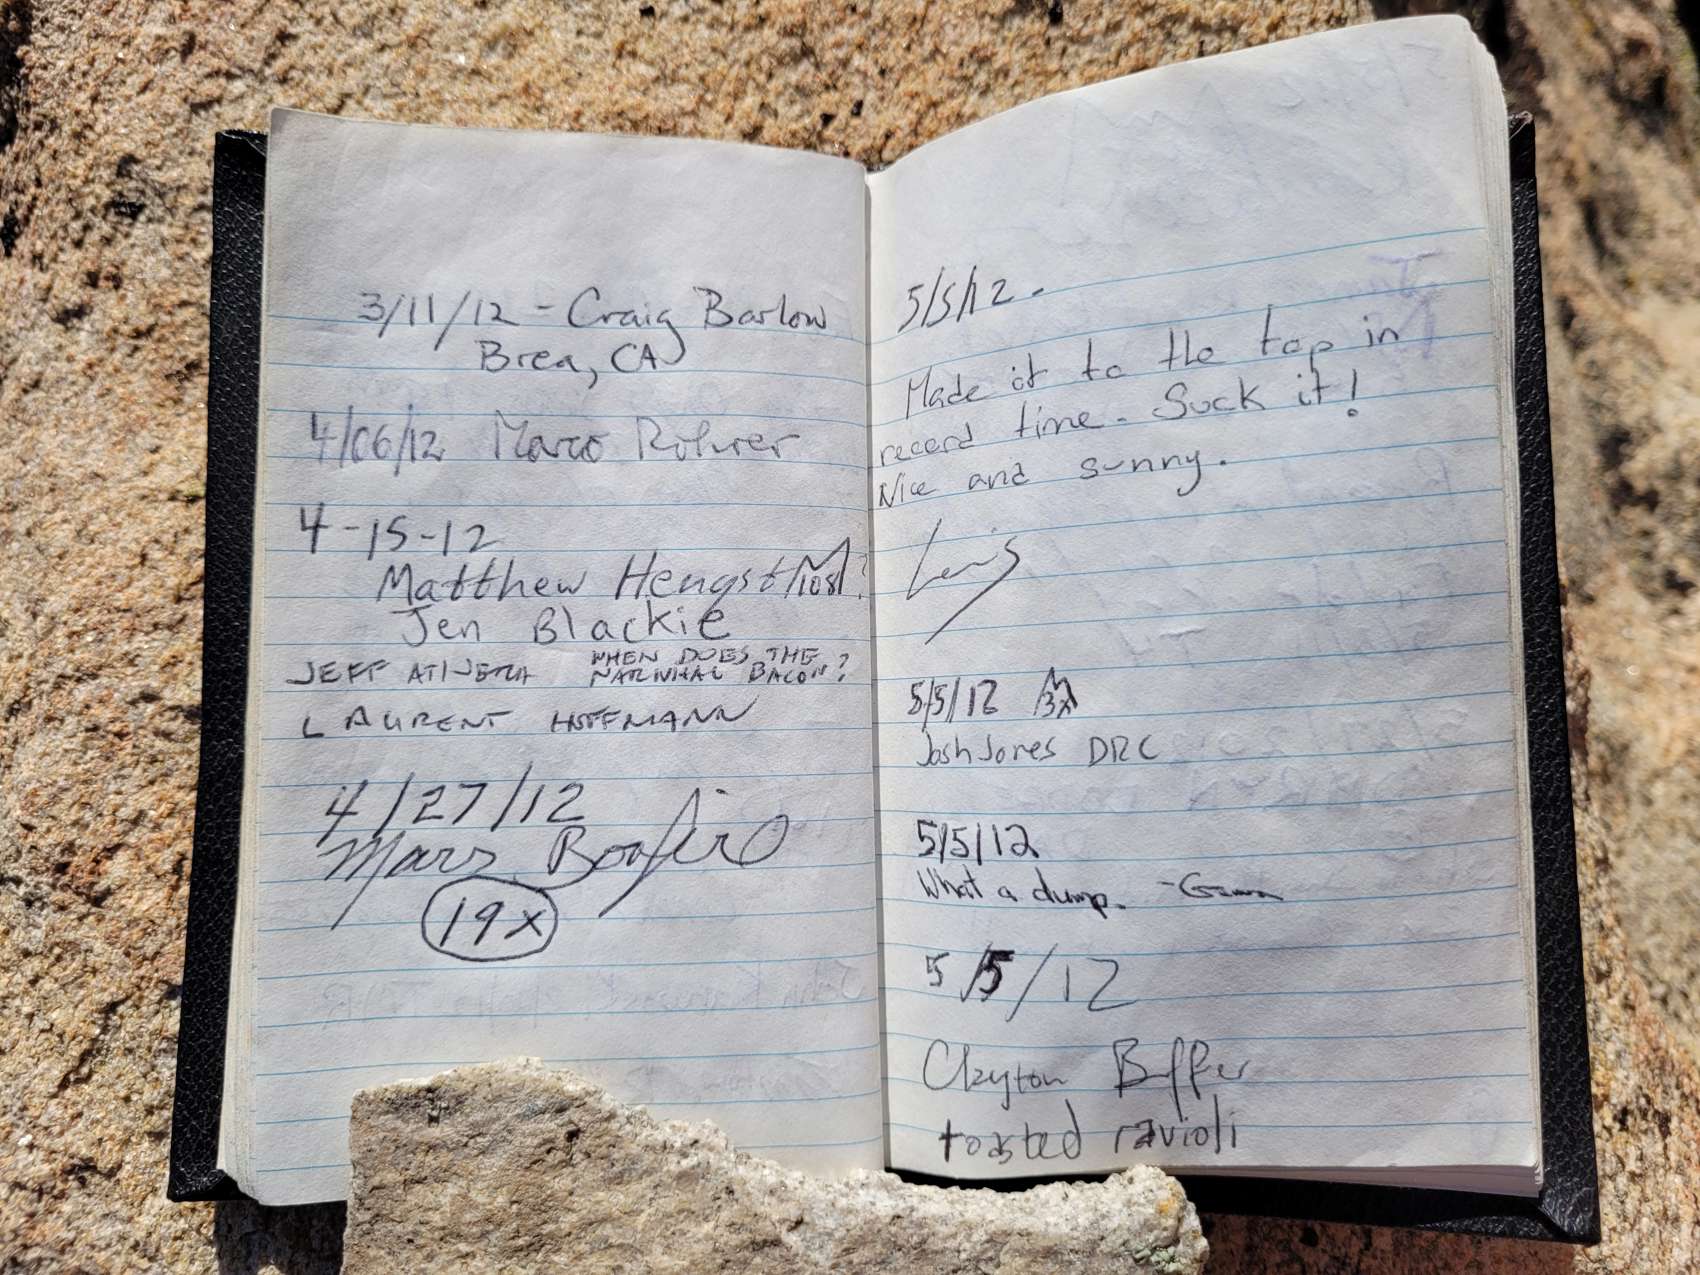 3/11/12 - Craig Barlow
Brea, CA
4/06/12 Marco Rohrer
4-15-12
Matthew
Jen Blackie
JEFF WHEN DOES THE
NARWHAL BACON?
LAURENT HOFFMANN
4/27/12
19x
5/5/12.
Made it to the top in
record time. Suck it!
Nice and sunny.
5/5/12 3x
Josh Jones DRC
5/5/12
What a dump.
5/5/12
Clayton Buffer
toasted ravioli